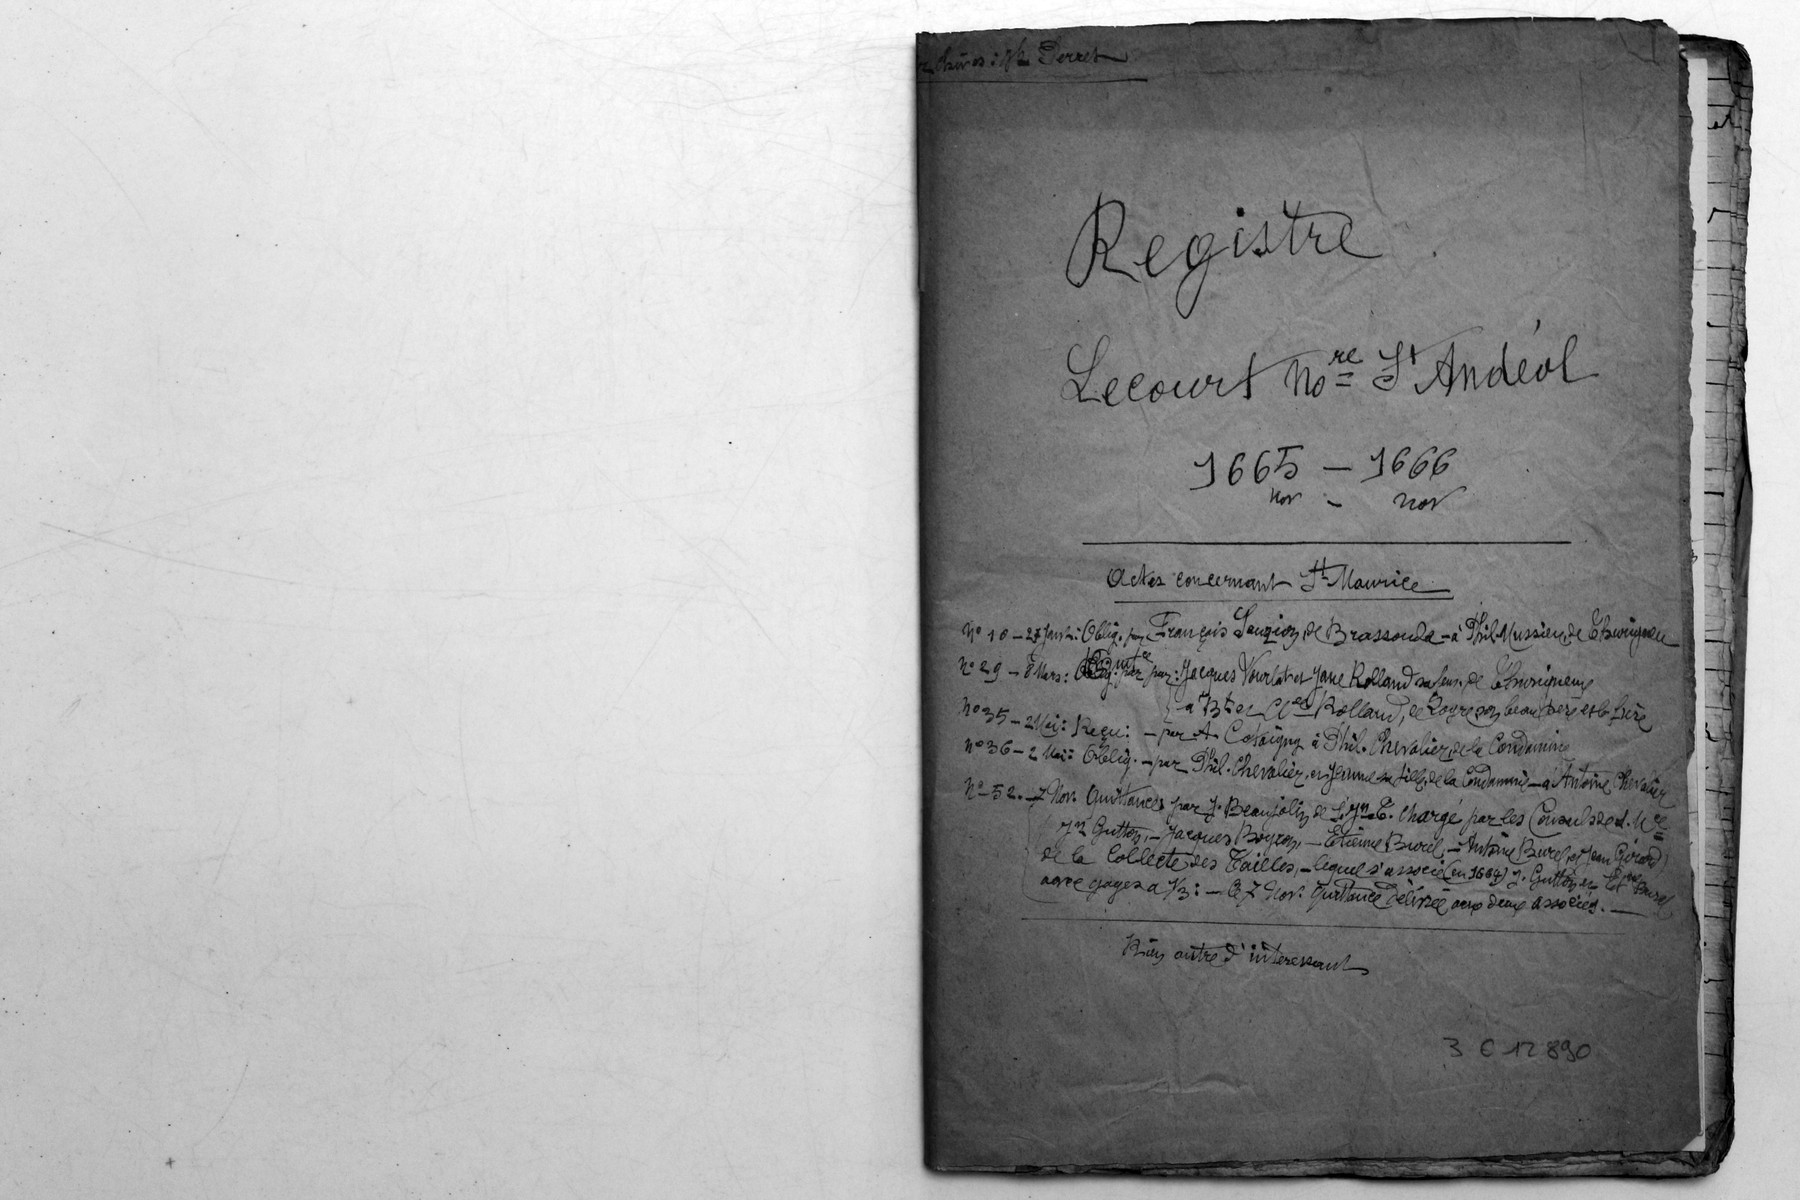 Perret
Registre
Lecourt No.re St Andéol
1665 - 1666
nov - nov
Actes concernant St Maurice
N° 10 - 27 Janv: Oblig. par François de Brassonde - à Phil. Mussieu, de
N° 29 - 8 Mars: par Jacques Vourlat et Jane Rolland sa fem. de
à Bt et Rolland, de son beau père et b. frère
N° 35 - 2 Mai: Reçu: - par A. à Phil. Chevalier, de la Condamine
N° 36 - 2 Mai: Oblig. - par Phil. Chevalier, et Jeanne sa fille, de la Condamine - à Antoine Chevalier
N° 52. - 7 Nov. Quittances par J. Beaujolin de chargé par les Consuls de
Jn Gutton, - Jacques Boyron, - Etienne Burel, - Antoine Burel, et Jean Girard)
de la Collecte des Tailles, - lequel s'associe (en 1664) J. Gutton et Burel
avec gages a 1/3: - Ce 7 Nov. Quittance délivrée aux deux associés. -
Rien autre d'interessant
3 E 12890